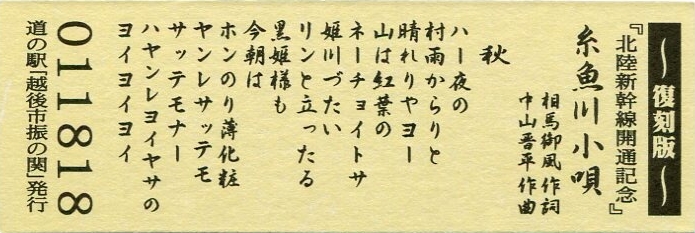 ～復刻版～
『北陸新幹線開通記念』
糸魚川小唄
相馬御風作詞
中山晋平作曲
秋
ハー夜の
村雨からりと
晴れりやヨー
山は紅葉の
ネーチョイトサ
姫川づたい
リンと立ったる
黒姫様も
今朝は
ホンのり薄化粧
ヤンレサッテモ
サッテモナー
ハヤンレヨイヤサの
ヨイヨイヨイ
011818
道の駅「越後市振の関」発行